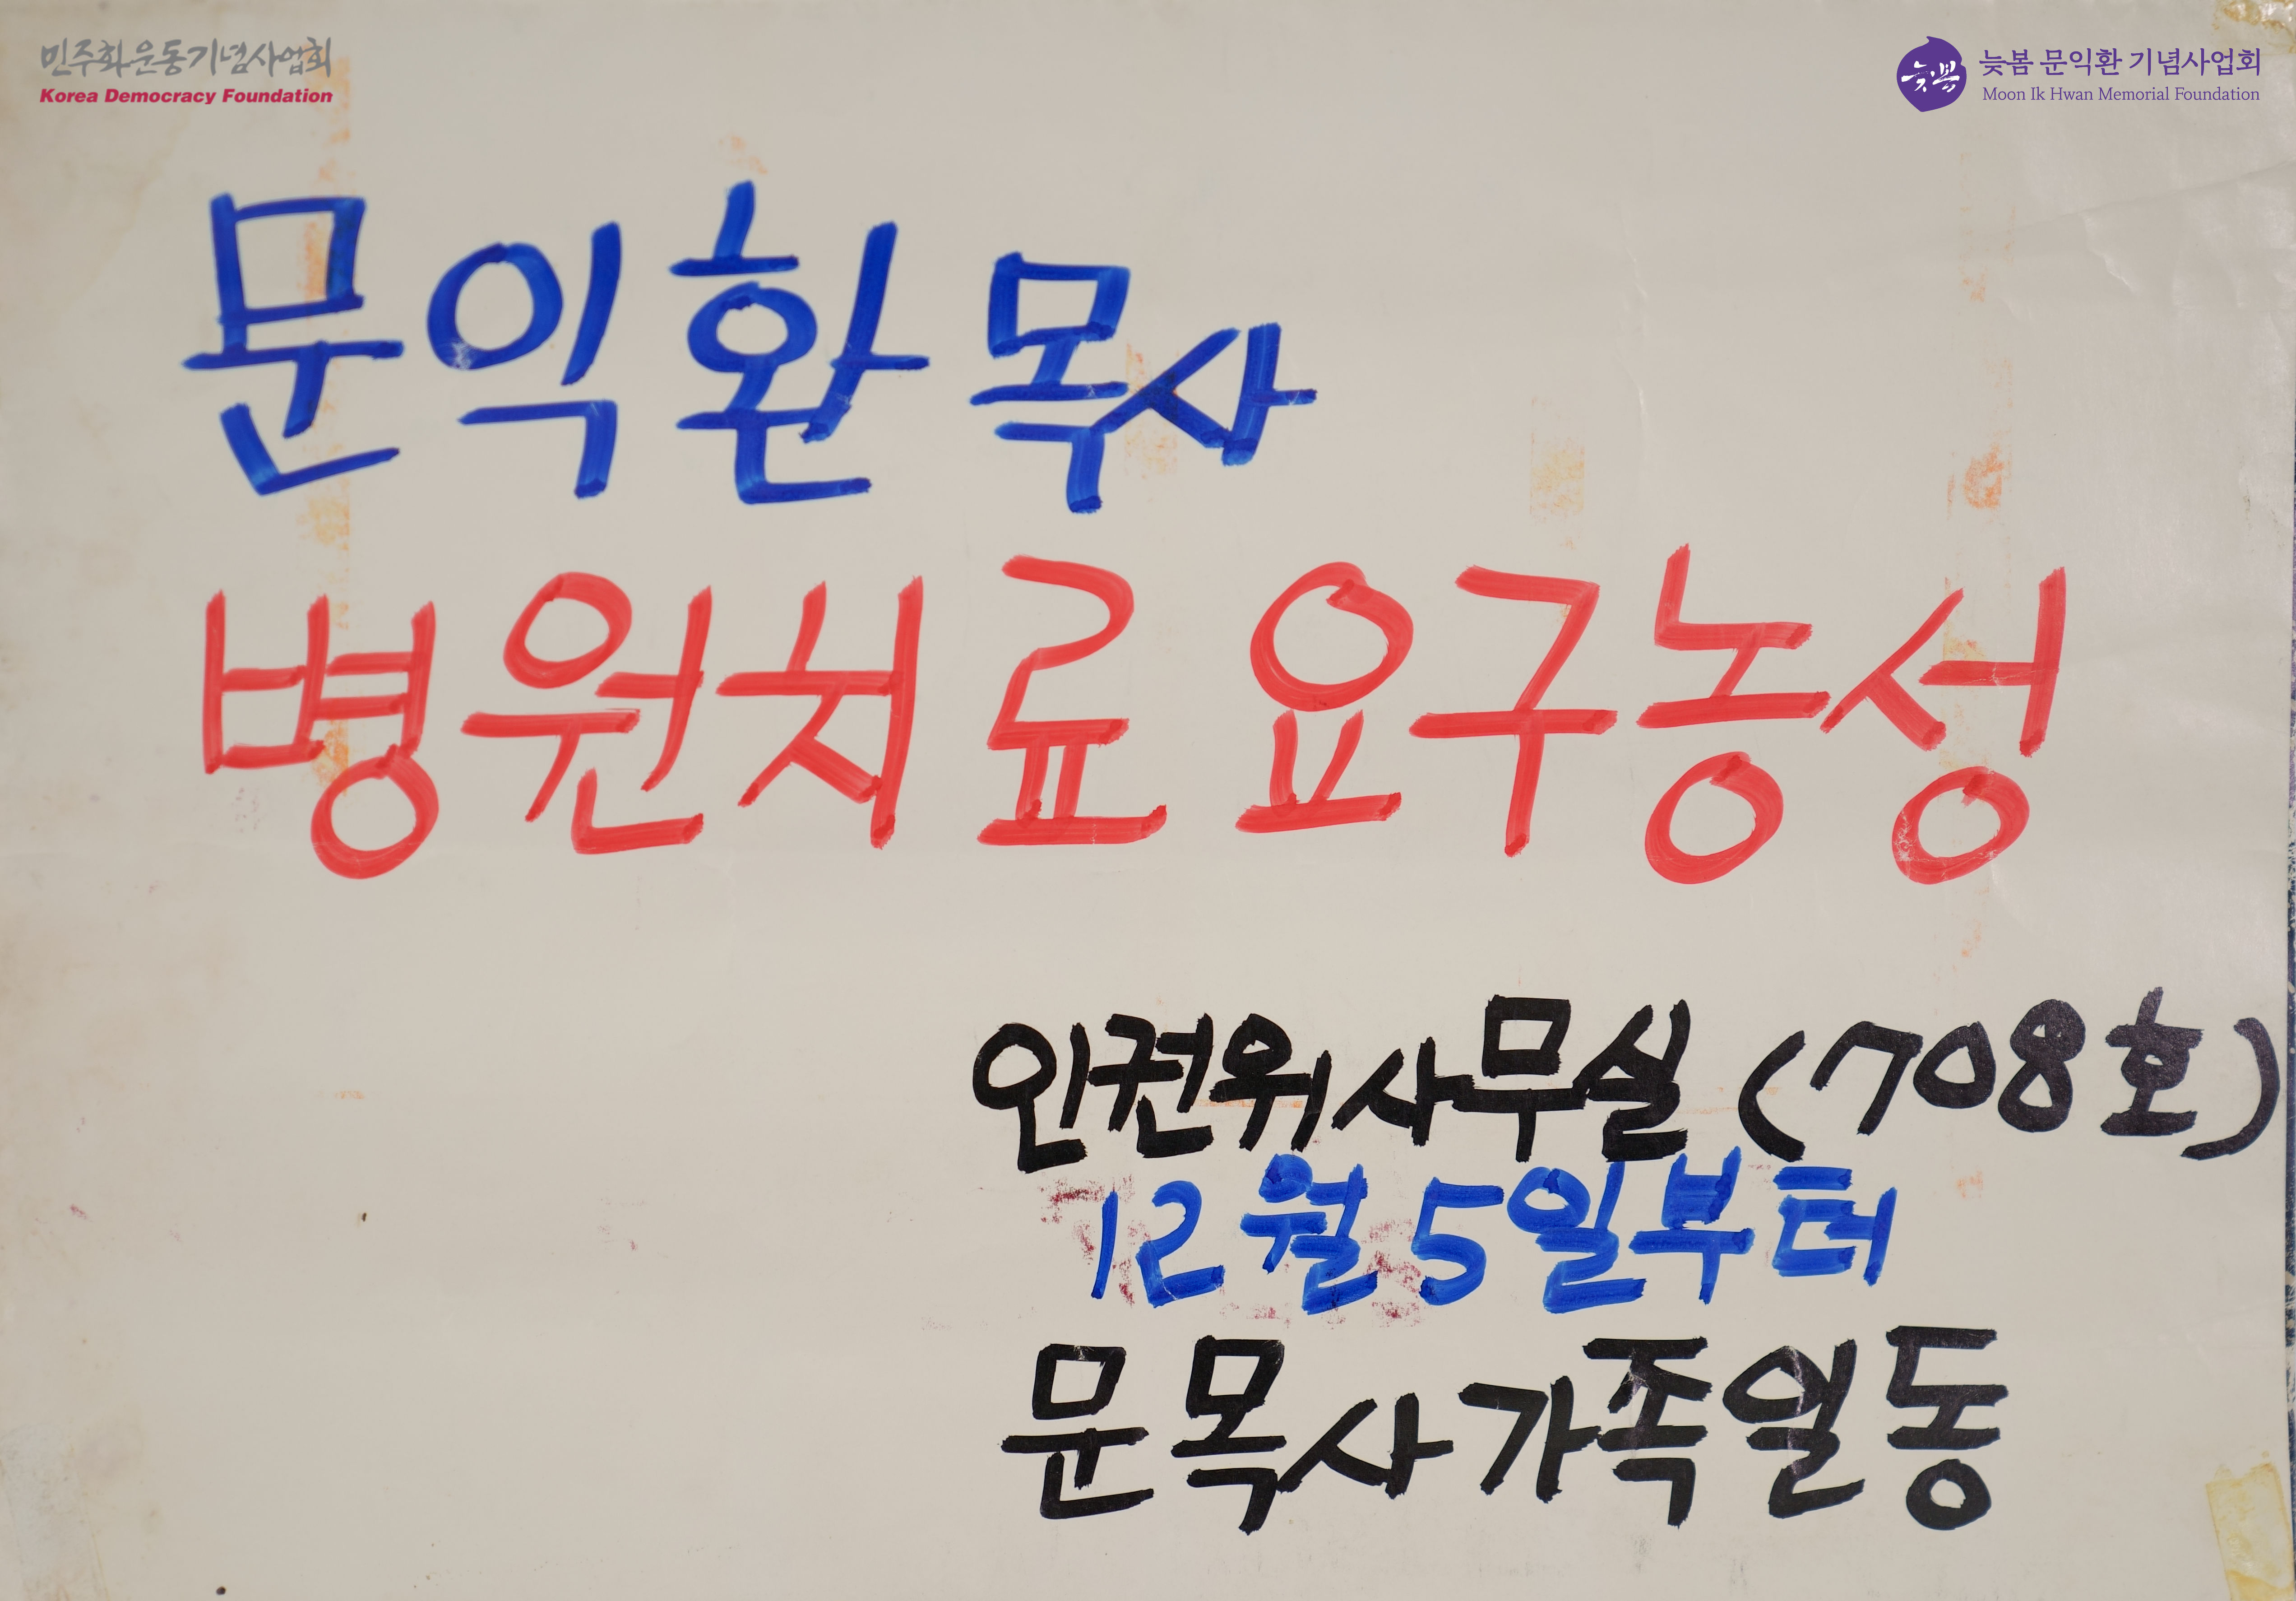 민주화운동기념사업회
Korea Democracy Foundation
늦봄
늦봄 문익환 기념사업회
Moon Ik Hwan Memorial Foundation
문익환 목사
병원치료 요구농성
인권위사무실 (708호)
12월 5일부터
문목사가족일동